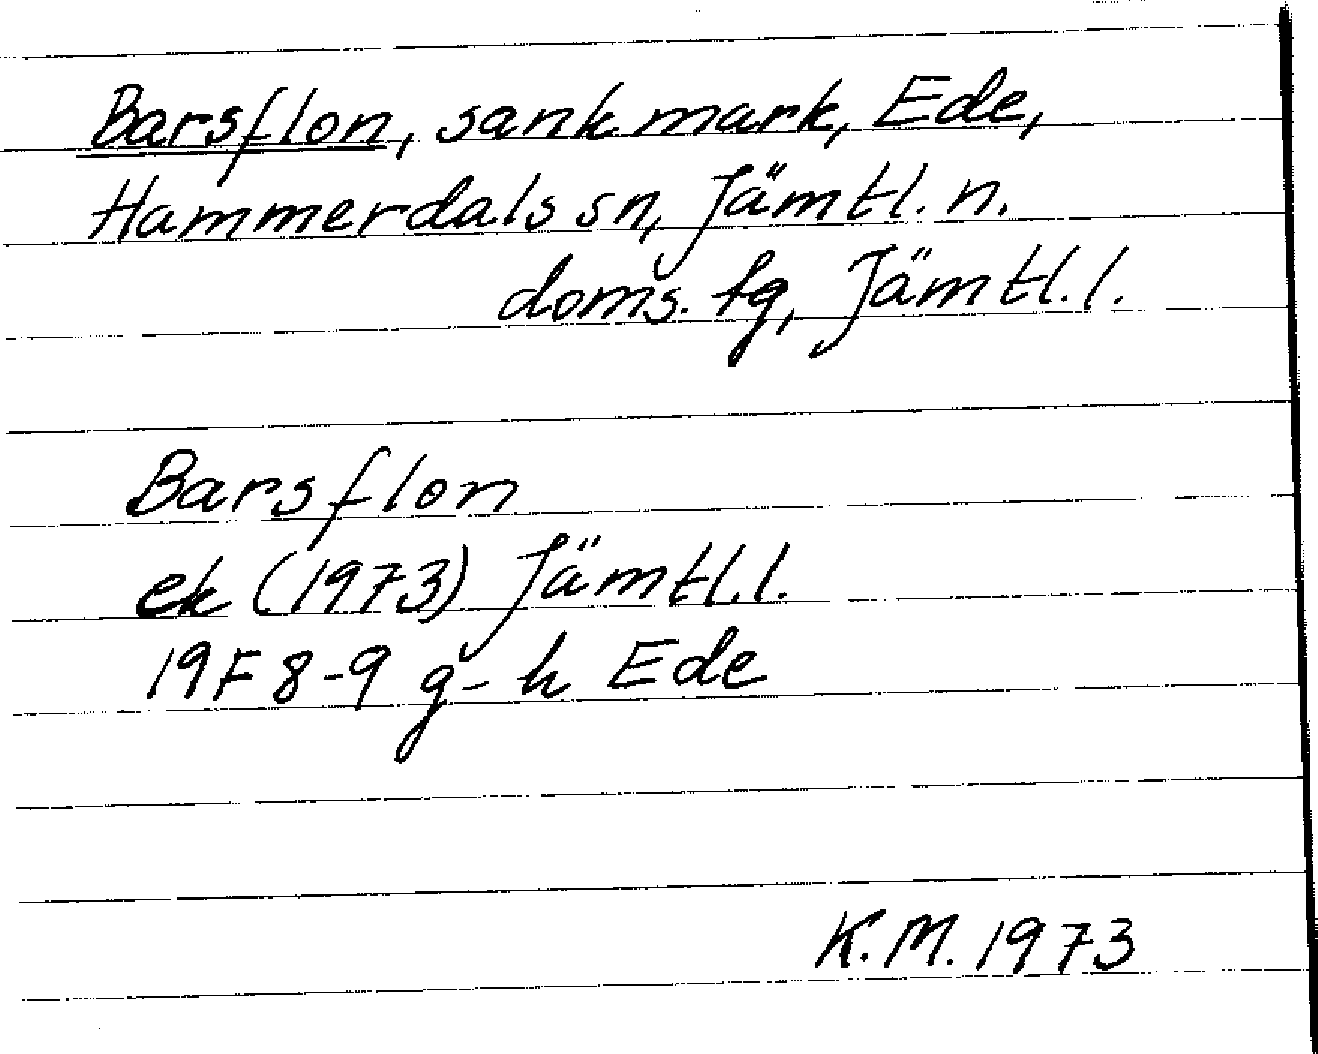 Barsflon, sank mark, Ede,
Hammerdals sn, Jämtl. n.
doms. tg, Jämtl. l.
Barsflon
ek (1973) Jämtl. l.
19F 8-9 g-h Ede
K. M. 1973